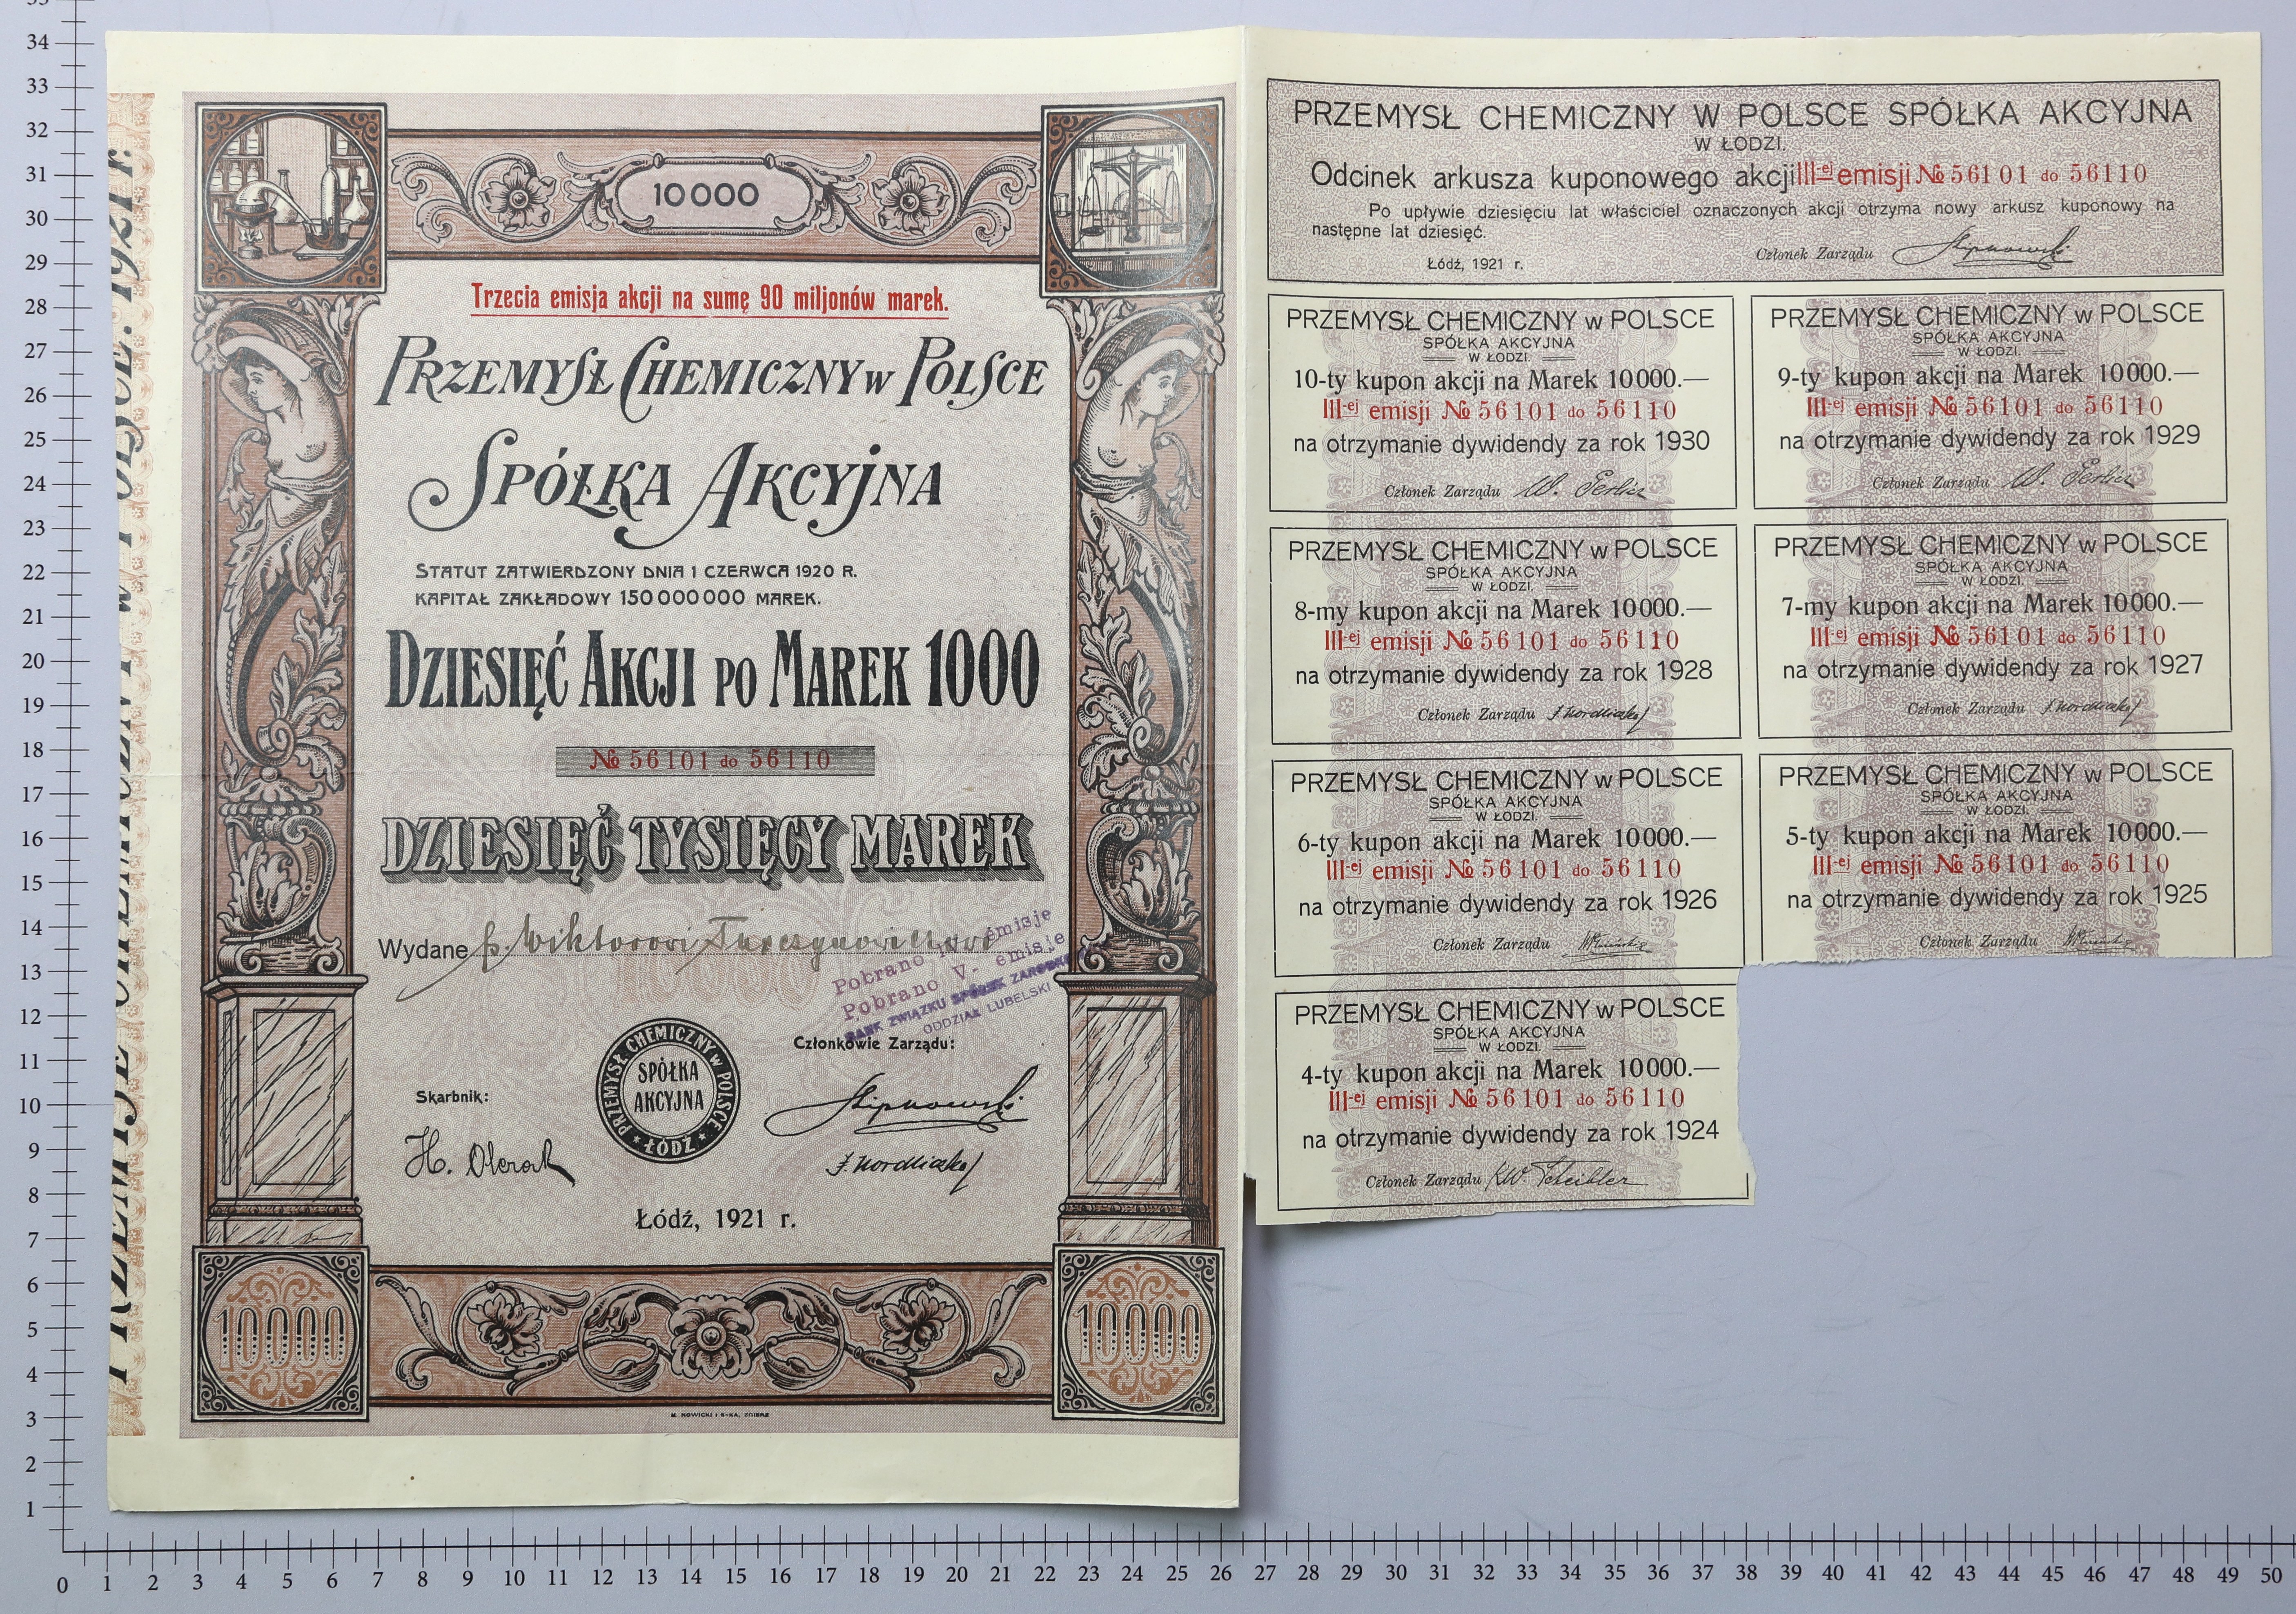 10000
Trzecia emisja akcji na sumę 90 miljonów marek.
PRZEMYSŁ CHEMICZNY w POLSCE
SPÓŁKA AKCYJNA
STATUT ZATWIERDZONY DNIA 1 CZERWCA 1920 R.
KAPITAŁ ZAKŁADOWY 150000000 MAREK.
DZIESIĘĆ AKCJI PO MAREK 1000
№ 56101 do 56110
DZIESIĘĆ TYSIĘCY MAREK
Wydane p. Wiktorowi
10000
Pobrano IV. emisje
Pobrano V. emisje
BANK ZWIĄZKU SPÓŁEK ZAROBK
ODDZIAŁ LUBELSKI
Członkowie Zarządu:
Skarbnik:
PRZEMYSŁ CHEMICZNY w POLSCE
SPÓŁKA
AKCYJNA
ŁÓDŹ
Łódź, 1921 r.
10000
10000
M. NOWICKI I S-KA, ZGIERZ
PRZEMYSŁ CHEMICZNY W POLSCE SPÓŁKA AKCYJNA
W ŁODZI.
Odcinek arkusza kuponowego akcji III-ej emisji № 56101 do 56110
Po upływie dziesięciu lat właściciel oznaczonych akcji otrzyma nowy arkusz kuponowy na
następne lat dziesięć.
Łódź, 1921 r.
Członek Zarządu
PRZEMYSŁ CHEMICZNY w POLSCE
SPÓŁKA AKCYJNA
W ŁODZI.
10-ty kupon akcji na Marek 10000.—
III-ej emisji № 56101 do 56110
na otrzymanie dywidendy za rok 1930
Członek Zarządu
PRZEMYSŁ CHEMICZNY w POLSCE
SPÓŁKA AKCYJNA
W ŁODZI.
9-ty kupon akcji na Marek 10000.—
III-ej emisji № 56101 do 56110
na otrzymanie dywidendy za rok 1929
Członek Zarządu
PRZEMYSŁ CHEMICZNY w POLSCE
SPÓŁKA AKCYJNA
W ŁODZI.
8-my kupon akcji na Marek 10000.—
III-ej emisji № 56101 do 56110
na otrzymanie dywidendy za rok 1928
Członek Zarządu
PRZEMYSŁ CHEMICZNY w POLSCE
SPÓŁKA AKCYJNA
W ŁODZI.
7-my kupon akcji na Marek 10000.—
III-ej emisji № 56101 do 56110
na otrzymanie dywidendy za rok 1927
Członek Zarządu
PRZEMYSŁ CHEMICZNY w POLSCE
SPÓŁKA AKCYJNA
W ŁODZI.
6-ty kupon akcji na Marek 10000.—
III-ej emisji № 56101 do 56110
na otrzymanie dywidendy za rok 1926
Członek Zarządu
PRZEMYSŁ CHEMICZNY w POLSCE
SPÓŁKA AKCYJNA
W ŁODZI.
5-ty kupon akcji na Marek 10000.—
III-ej emisji № 56101 do 56110
na otrzymanie dywidendy za rok 1925
Członek Zarządu
PRZEMYSŁ CHEMICZNY w POLSCE
SPÓŁKA AKCYJNA
W ŁODZI.
4-ty kupon akcji na Marek 10000.—
III-ej emisji № 56101 do 56110
na otrzymanie dywidendy za rok 1924
Członek Zarządu KW. Scheibler
34
33
32
31
30
29
28
27
26
25
24
23
22
21
20
19
18
17
16
15
14
13
12
11
10
9
8
7
6
5
4
3
2
1
0 1 2 3 4 5 6 7 8 9 10 11 12 13 14 15 16 17 18 19 20 21 22 23 24 25 26 27 28 29 30 31 32 33 34 35 36 37 38 39 40 41 42 43 44 45 46 47 48 49 50